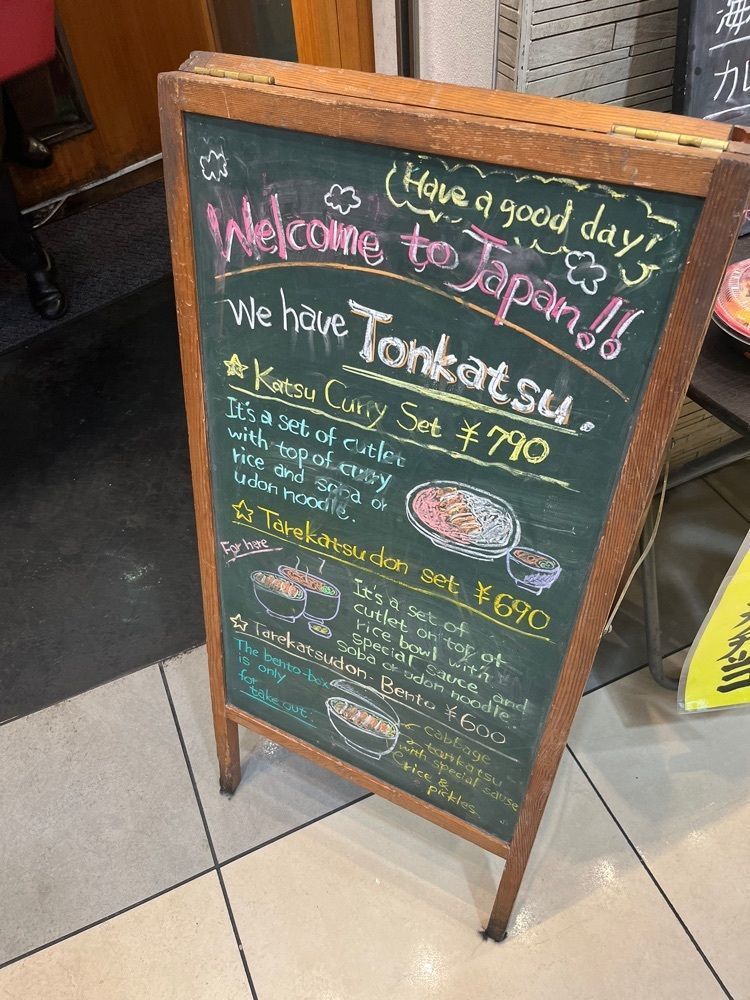 Have a good day!
Welcome to Japan!!
We have Tonkatsu.
Katsu Curry Set ¥790
It's a set of cutlet
with top of curry
rice and soba or
udon noodle.
Tarekatsudon set ¥690
For here
It's a set of
cutlet on top of
rice bowl with
special sauce and
soba or udon noodle.
Tarekatsudon. Bento ¥600
The bento-box
is only
for
take out.
cabbage
tonkatsu
with special sause
rice &
pickles
カレ
弁当